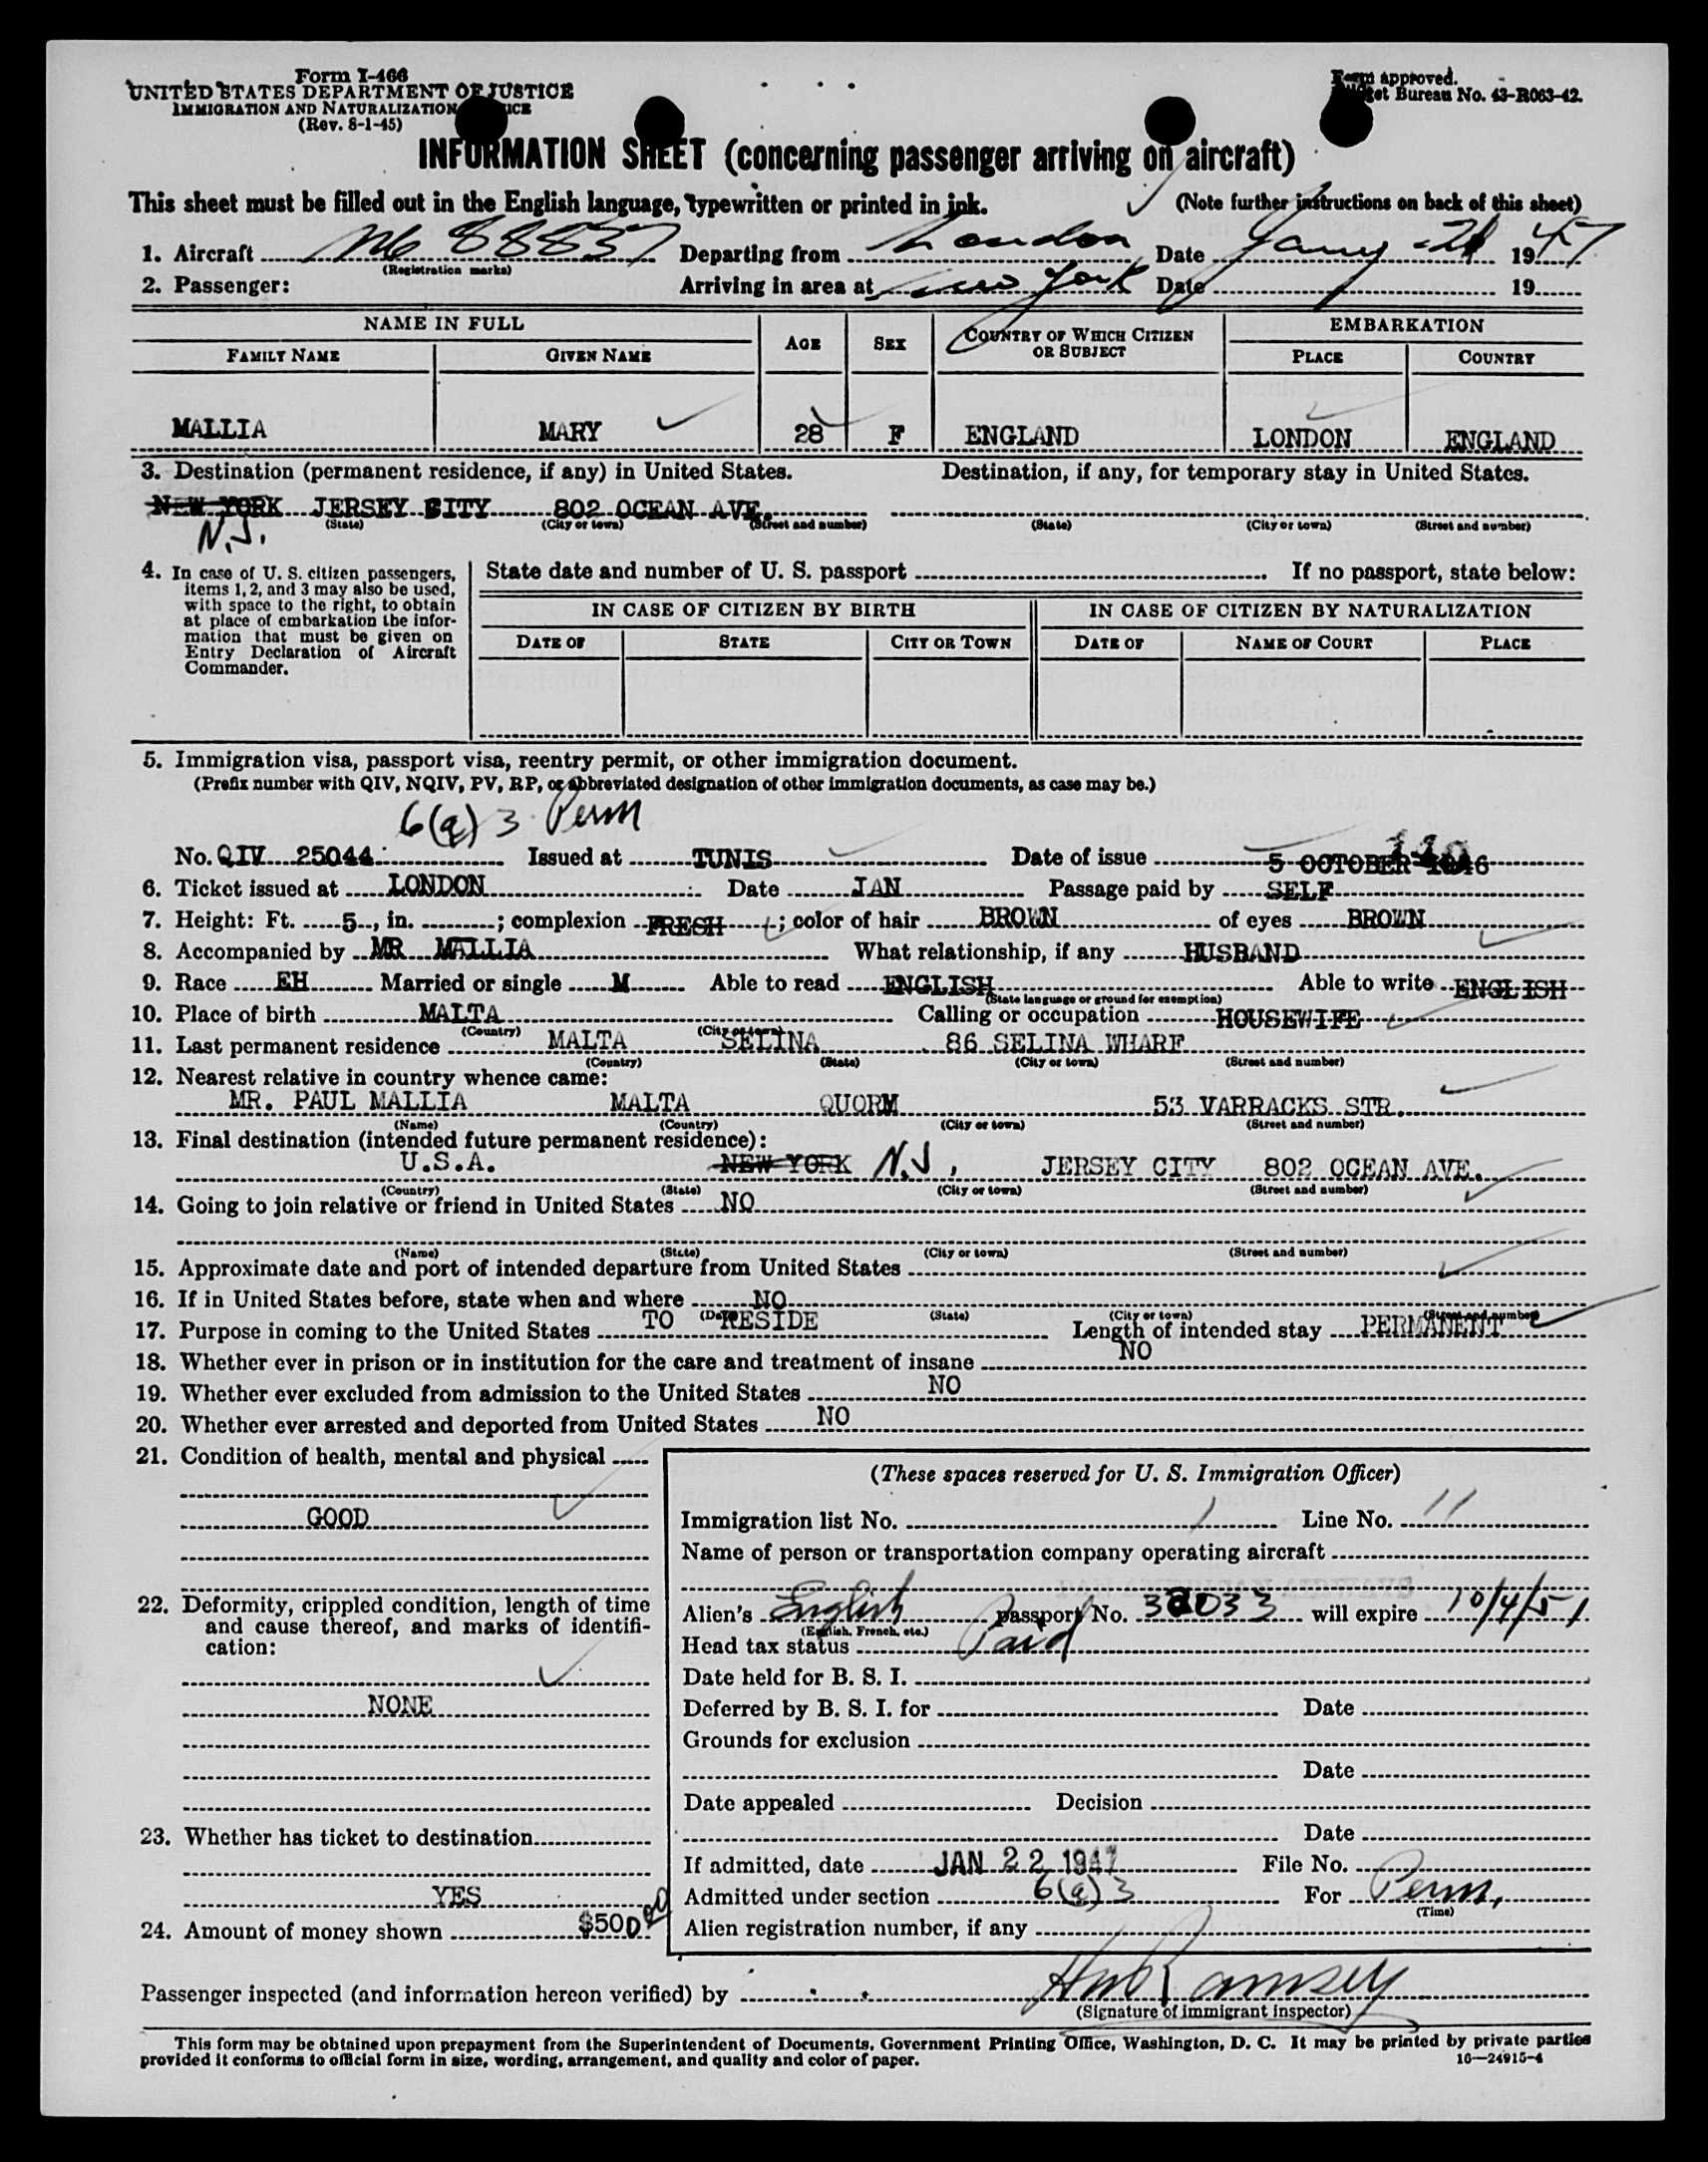 Form I-466
UNITED STATES DEPARTMENT OF JUSTICE
IMMIGRATION AND NATURALIZATION
(Rev. 8-1-45)
Form approved.
Bureau No. 43-R063-42.
INFORMATION SHEET (concerning passenger arriving on aircraft)
This sheet must be filled out in the English language, typewritten or printed in ink. (Note further instructions on back of this sheet)
1. Aircraft 88837 Departing from London Date Jany 21 1947
(Registration marks)
2. Passenger: Arriving in area at New York Date 19
NAME IN FULL AGE SEX COUNTRY OF WHICH CITIZEN OR SUBJECT EMBARKATION
FAMILY NAME GIVEN NAME PLACE COUNTRY
MALLIA MARY 28 F ENGLAND LONDON ENGLAND
3. Destination (permanent residence, if any) in United States. Destination, if any, for temporary stay in United States.
NEW YORK JERSEY CITY 802 OCEAN AVE.
(State) (City or town) (Street and number) (State) (City or town) (Street and number)
N.J.
4. In case of U. S. citizen passengers,
items 1, 2, and 3 may also be used,
with space to the right, to obtain
at place of embarkation the infor-
mation that must be given on
Entry Declaration of Aircraft
Commander.
State date and number of U. S. passport If no passport, state below:
IN CASE OF CITIZEN BY BIRTH IN CASE OF CITIZEN BY NATURALIZATION
DATE OF STATE CITY OR TOWN DATE OF NAME OF COURT PLACE
5. Immigration visa, passport visa, reentry permit, or other immigration document.
(Prefix number with QIV, NQIV, PV, RP, or abbreviated designation of other immigration documents, as case may be.)
6(a) 3 Perm
No. QIV 25044 Issued at TUNIS Date of issue 5 OCTOBER 1946
6. Ticket issued at LONDON Date JAN Passage paid by SELF
7. Height: Ft. 5, in. ; complexion FRESH ; color of hair BROWN of eyes BROWN
8. Accompanied by MR MALLIA What relationship, if any HUSBAND
9. Race EH Married or single M Able to read ENGLISH Able to write ENGLISH
(State language or ground for exemption)
10. Place of birth MALTA Calling or occupation HOUSEWIFE
(Country) (City or town)
11. Last permanent residence MALTA SELINA 86 SELINA WHARF
(Country) (State) (City or town) (Street and number)
12. Nearest relative in country whence came:
MR. PAUL MALLIA MALTA QUORM 53 VARRACKS STR.
(Name) (Country) (City or town) (Street and number)
13. Final destination (intended future permanent residence):
U.S.A. NEW YORK N.J, JERSEY CITY 802 OCEAN AVE.
(Country) (State) (City or town) (Street and number)
14. Going to join relative or friend in United States NO
(Name) (State) (City or town) (Street and number)
15. Approximate date and port of intended departure from United States
16. If in United States before, state when and where NO
(Date) (State) (City or town) (Street and number)
17. Purpose in coming to the United States TO RESIDE Length of intended stay PERMANENT
18. Whether ever in prison or in institution for the care and treatment of insane NO
19. Whether ever excluded from admission to the United States NO
20. Whether ever arrested and deported from United States NO
21. Condition of health, mental and physical
GOOD
22. Deformity, crippled condition, length of time
and cause thereof, and marks of identifi-
cation:
NONE
23. Whether has ticket to destination
YES
24. Amount of money shown $500 00
(These spaces reserved for U. S. Immigration Officer)
Immigration list No. 1 Line No. 11
Name of person or transportation company operating aircraft
Alien's English passport No. 32033 will expire 10/4/51
(English, French, etc.)
Head tax status Paid
Date held for B. S. I.
Deferred by B. S. I. for Date
Grounds for exclusion
Date
Date appealed Decision
Date
If admitted, date JAN 22 1947 File No.
Admitted under section 6(a) 3 For Perm,
(Time)
Alien registration number, if any
Passenger inspected (and information hereon verified) by Ramsey
(Signature of immigrant inspector)
This form may be obtained upon prepayment from the Superintendent of Documents, Government Printing Office, Washington, D. C. It may be printed by private parties
provided it conforms to official form in size, wording, arrangement, and quality and color of paper. 16—24915-4